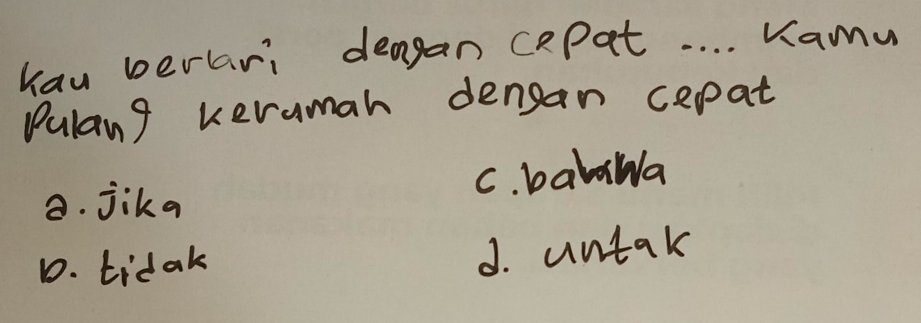 kau berlari dengan cepat .... Kamu
Pulang kerumah dengan cepat
a. jika
c. bahwa
b. tidak
d. untuk